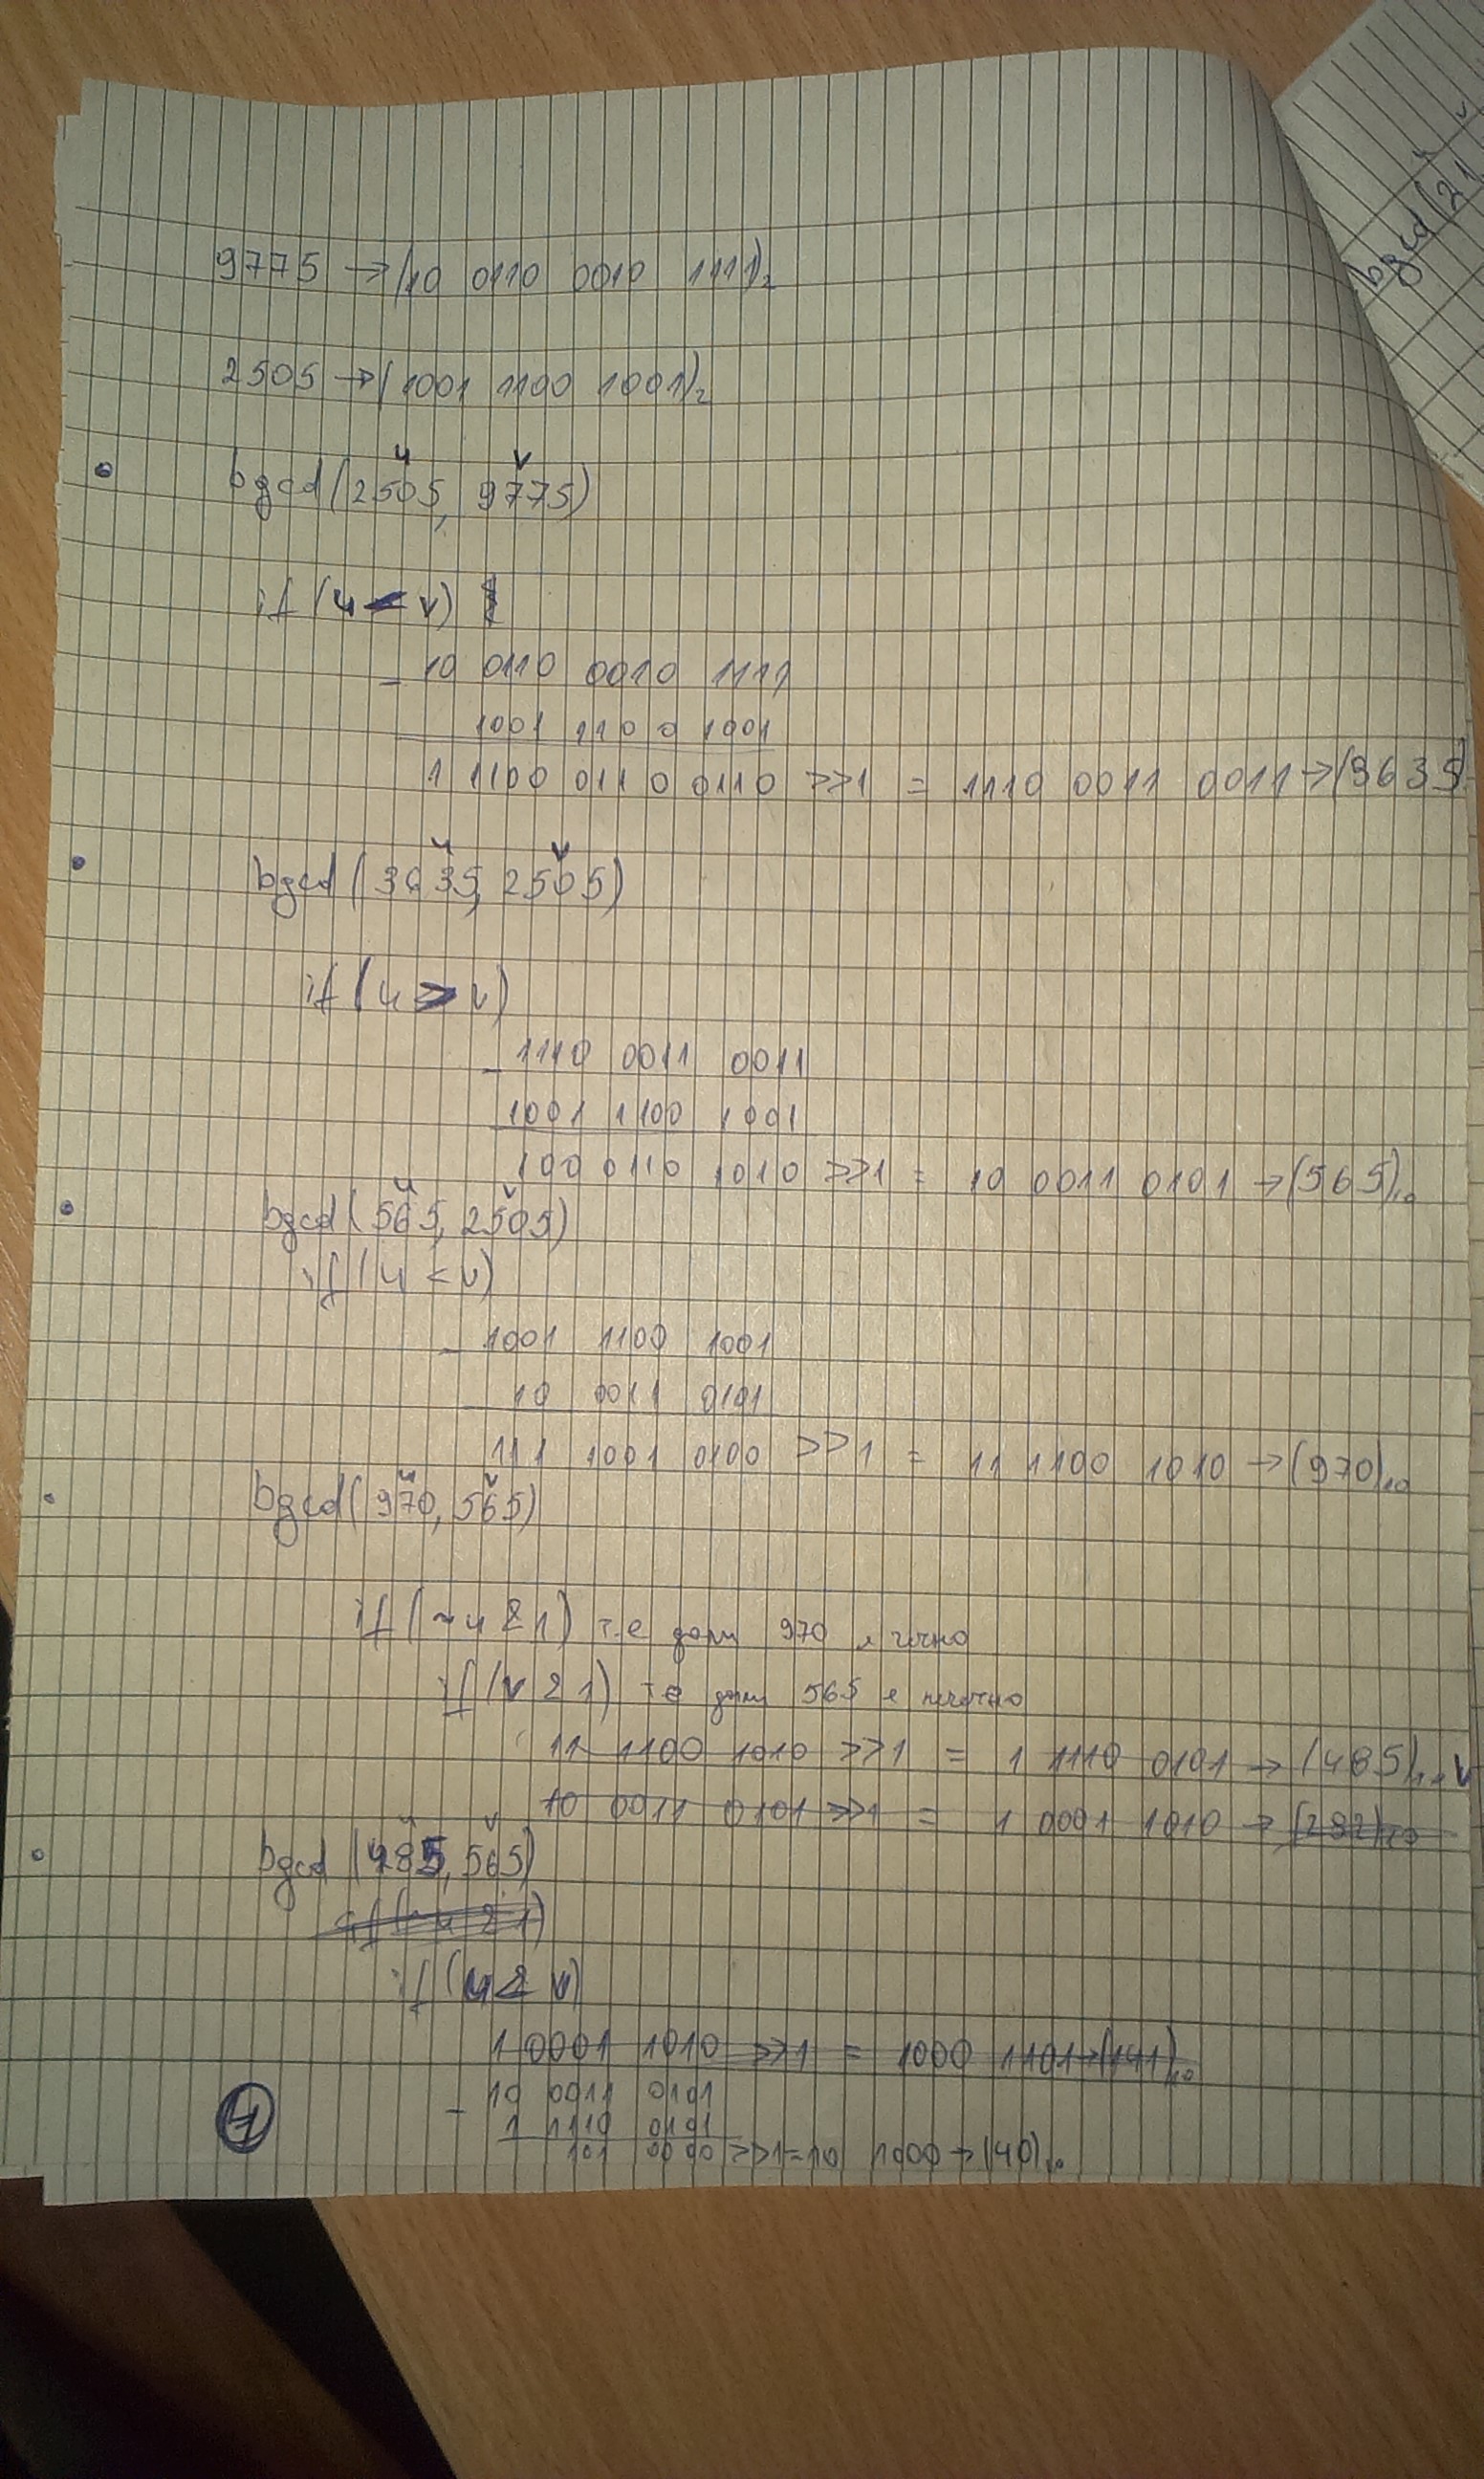 9775 → (10 0110 0010 1111)₂
2505 → (1001 1100 1001)₂
u v
• bgcd(2505, 9775)
if (u < v)
- 10 0110 0010 1111
1001 1100 1001
1 1100 0110 0110 >>1 = 1110 0011 0011 → (3635)
u v
• bgcd(3635, 2505)
if (u > v)
- 1110 0011 0011
1001 1100 1001
100 0110 1010 >>1 = 10 0011 0101 → (565)₁₀
u v
• bgcd(565, 2505)
if (u < v)
- 1001 1100 1001
10 0011 0101
111 1001 0100 >>1 = 11 1100 1010 → (970)₁₀
u v
• bgcd(970, 565)
if (~u & 1) т.е дали 970 е четно
if (v & 1) т.е дали 565 е нечетно
11 1100 1010 >>1 = 1 1110 0101 → (485)₁₀
10 0011 0101 >>1 = 1 0001 1010 → (282)₁₀
u v
• bgcd(485, 565)
if (~u & 1)
if (u < v)
1 0001 1010 >>1 = 1000 1101 → (141)₁₀
- 10 0011 0101
1 1110 0101
101 0000 >>1 = 10 1000 → (40)₁₀
bgcd(21,